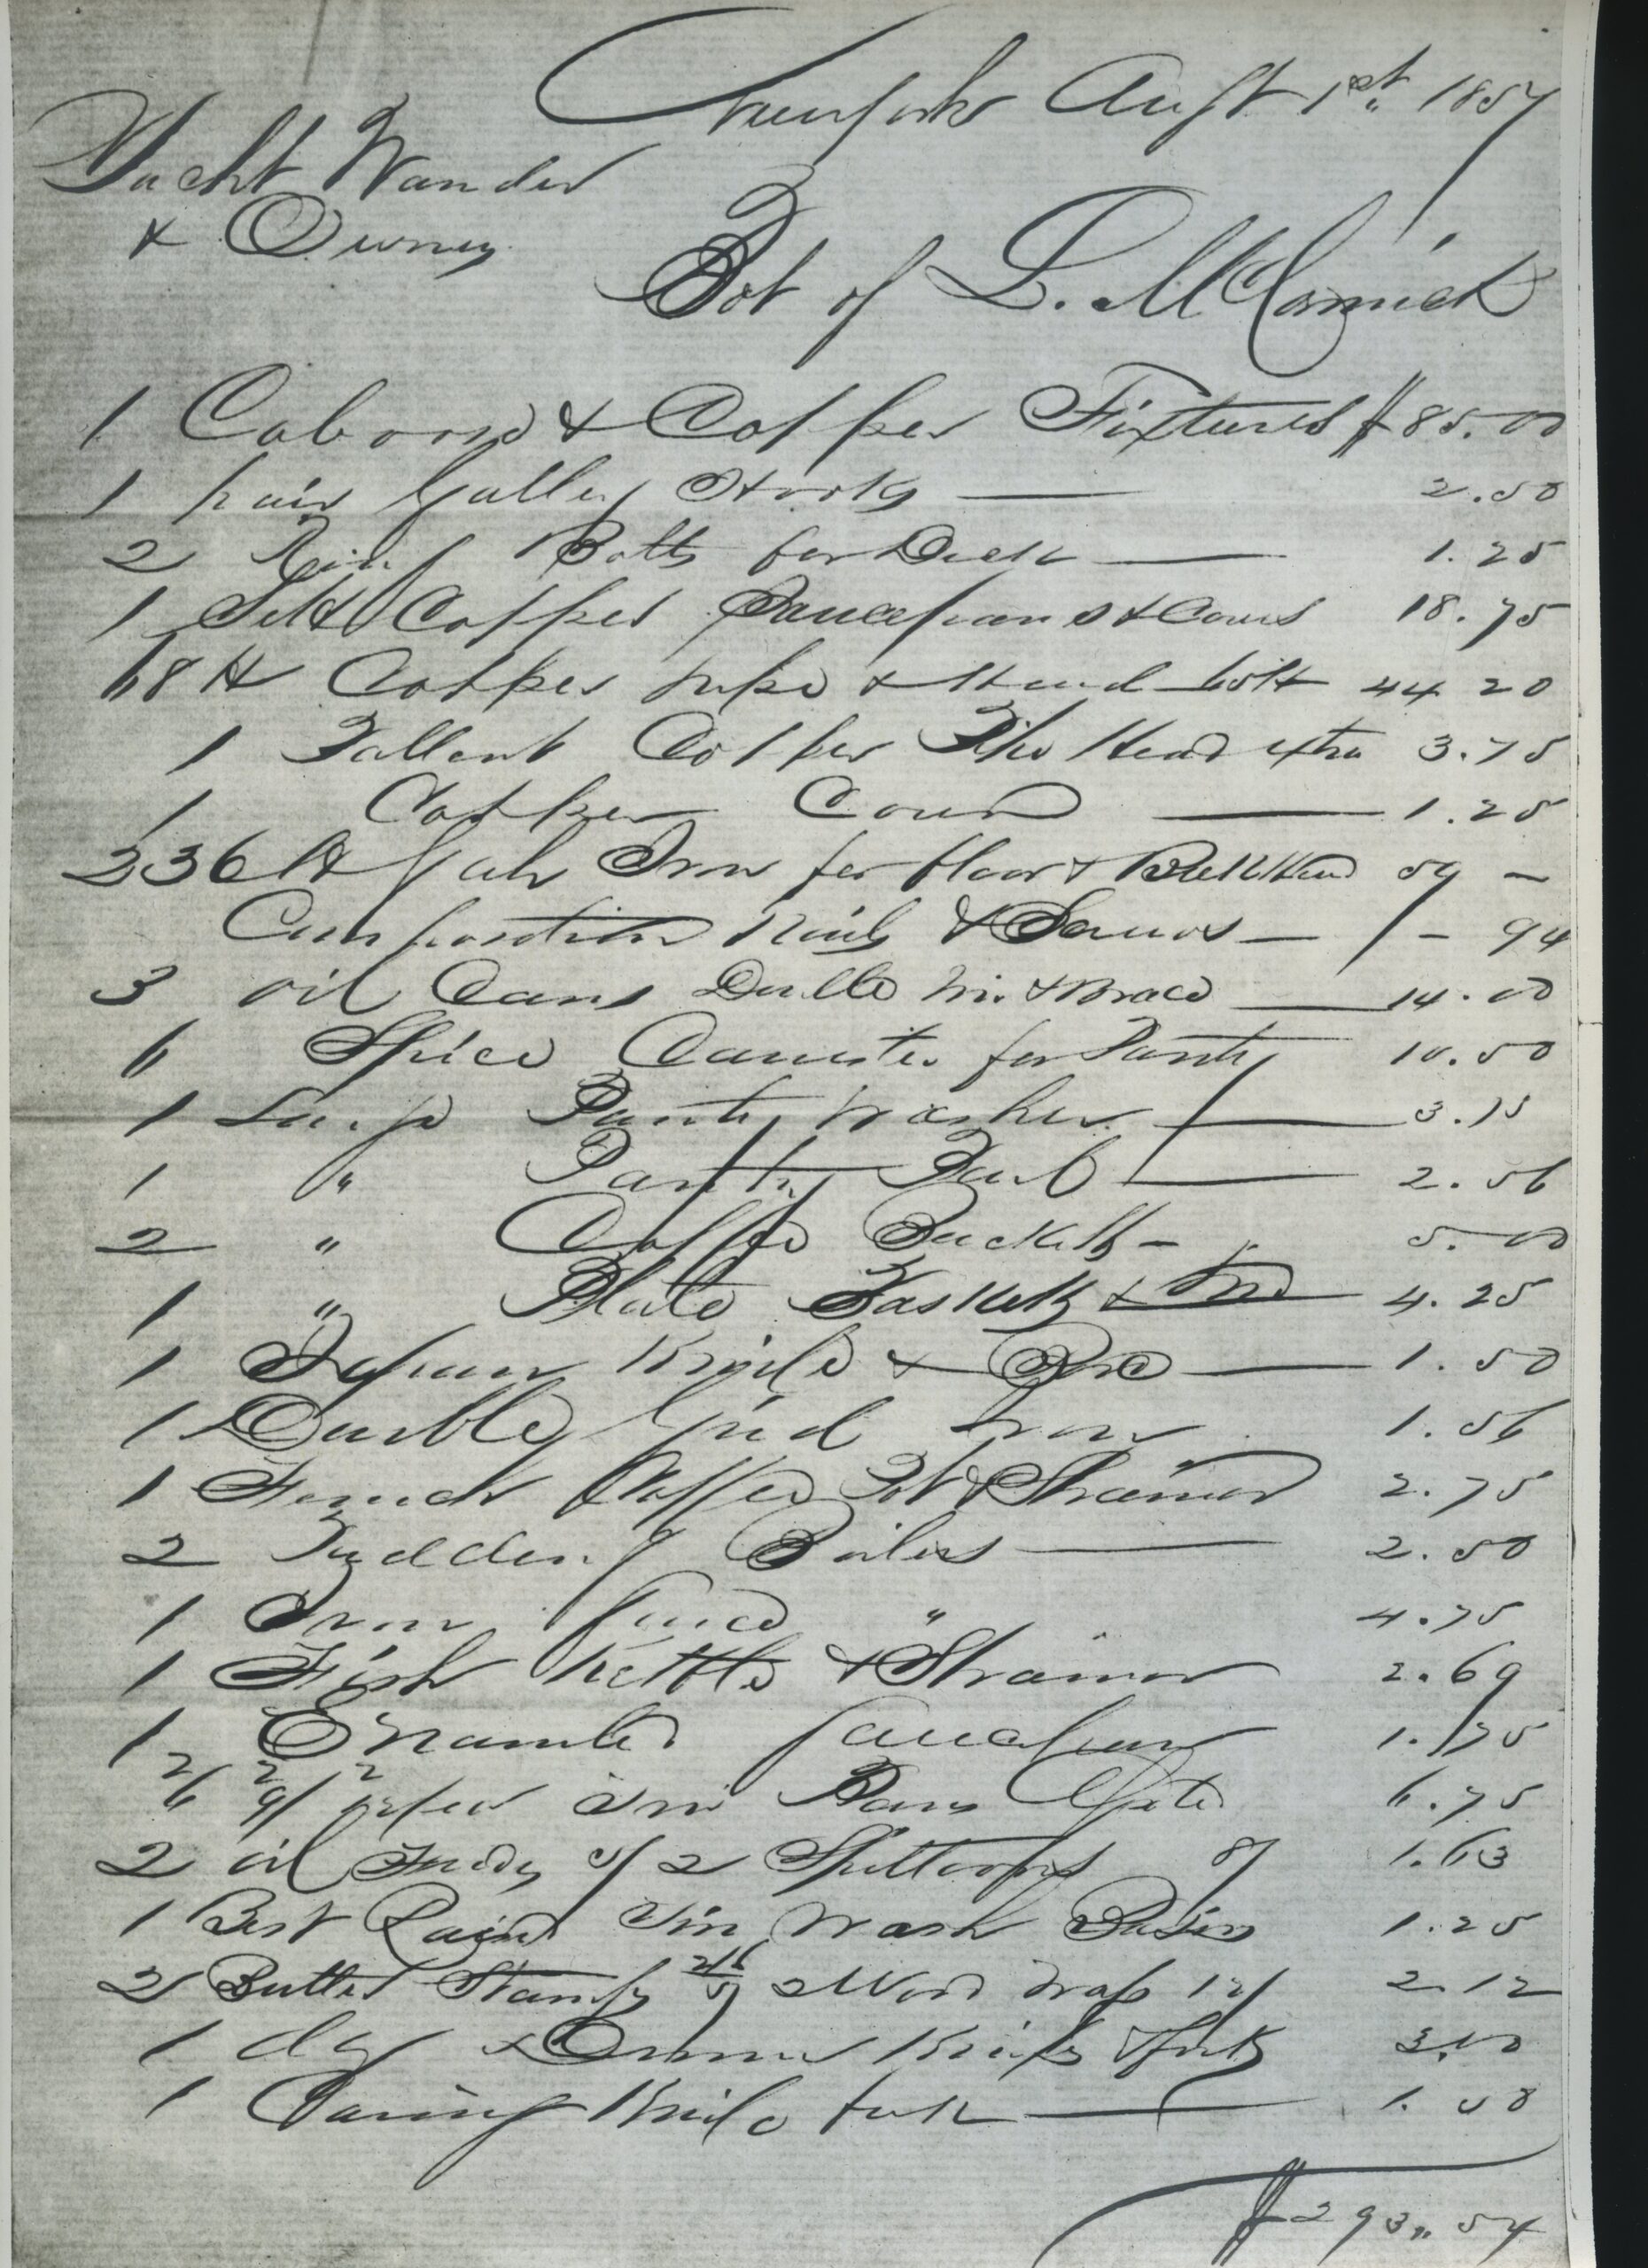 New york Augt 1st 1857
Yacht Wander
& Owners
Bot of L. McCormick
1 Caboose & Copper Fixtures $85.00
1 pair Galley 2.50
2 Ring Bolts for Deck 1.25
1 Sett Copper Saucepans & Covers 18.75
68 lb Copper pipe & Head 44 20
1 Pattent Copper Pipe Head extra 3.75
1 Copper Cover 1.25
236 lb Galv Iron for floor & BulkHead 59 —
Composition Nails & Screws — 94
3 oil Cans Double tin & Brace 14.00
6 Spice Canisters for Pantry 10.50
1 Large Pantry Washer 3.75
1 " Pantry Pail 2.56
2 " Coffee Bucketts — 5.00
1 " Plate Basketts & Tin 4.25
1 Japan Knife & Box 1.50
1 Double Grid Iron 1.56
1 French Coffee Pot & Strainer 2.75
2 Pudding Boilers 2.50
1 Iron " 4.75
1 Fish Kettle & Strainer 2.69
1 Enameled Saucepan 1.75
2/6 2 9/ 2 Tin Pans 6.75
2 oil Feeders 2 Spittoons 8/ 1.63
1 Best Tin Wash Basin 1.25
2 Butter Stamps 2 Wood 2 12
1 dz Dinner Knifs & forks 3.00
1 Carving Knife fork 1.50
$293.. 54